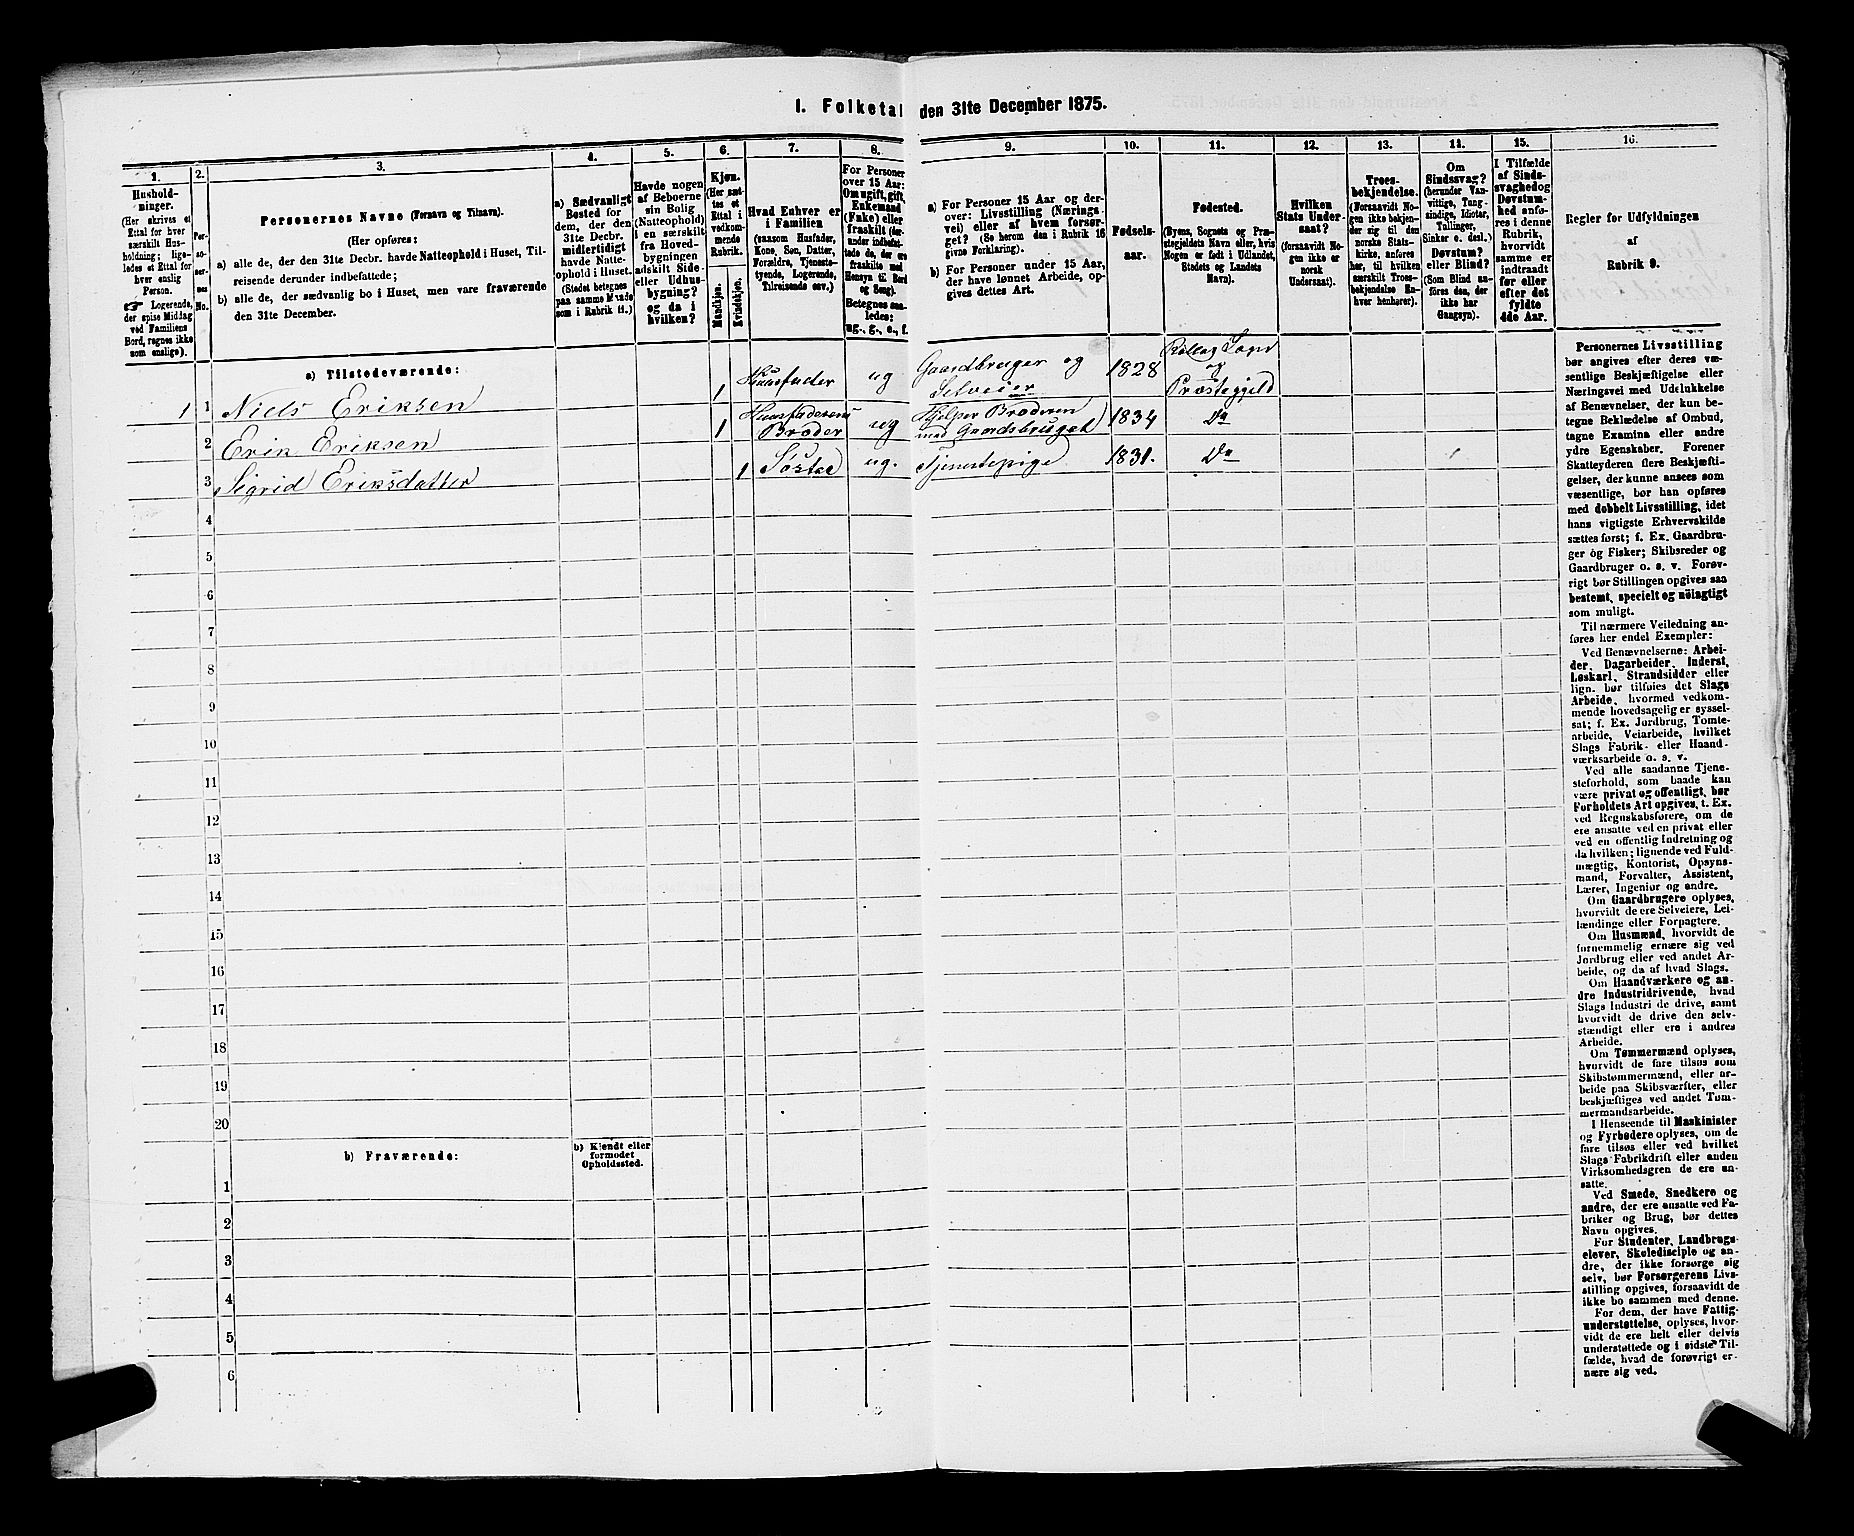 I. Folketal den 31te December 1875.
1.
Hushold-
ninger.
(Her skrives et
Ettal for hver
særskilt Hus-
holdning; lige-
ledes et Ettal for
hver enslig
Person.
☞ Logerende,
der spise Middag
ved Familiens
Bord, regnes ikke
som enslige).
2.
Per-
so-
ner-
nes
No.
3.
Personernes Navne (Fornavn og Tilnavn).
(Her opføres:
a) alle de, der den 31te Decbr. havde Natteophold i Huset, Til-
reisende derunder indbefattede;
b) alle de, der sædvanlig bo i Huset, men vare fraværende
den 31te December.
4.
a) Sædvanligt
Bosted for
dem, der den
31te Decbr.
midlertidigt
havde Natte-
ophold i Huset.
(Stedet betegnes
paa samme Maade
som i Rubrik 11.)
5.
Havde nogen
af Beboerne
sin Bolig
(Natteophold)
i en særskilt
fra Hoved-
bygningen
adskilt Side-
eller Udhus-
bygning? og
da i
hvilken?
6.
Kjøn.
(Her sæt-
tes et
Ettal i
vedkom-
mende
Rubrik.
Mandkjøn.
Kvindekjøn.
7.
Hvad Enhver er
i Familien
(saasom Husfader,
Kone, Søn, Datter,
Forældre, Tjeneste-
tyende, Logerende,
Tilreisende osv.)
8.
For Personer
over 15 Aar:
Om ugift, gift,
Enkemand
(Enke) eller
fraskilt (der-
under indbefat-
tede de, der ere
fraskilte med
Hensyn til Bord
og Seng).
Betegnes saa-
ledes:
ug., g., e., f.
9.
a) For Personer 15 Aar og der-
over: Livsstilling (Nærings-
vei) eller af hvem forsør-
get? (Se herom den i Rubrik 16
givne Forklaring).
b) For Personer under 15 Aar,
der have lønnet Arbeide, op-
gives dettes Art.
10.
Fødsels-
aar.
11.
Fødested.
(Byens, Sognets og Præ-
stegjeldets Navn eller, hvis
Nogen er født i Udlandet,
Stedets og Landets
Navn).
12.
Hvilken
Stats Under-
saat?
(forsaavidt No-
gen ikke er
norsk
Undersaat).
13.
Troes-
bekjendelse.
(Forsaavidt No-
gen ikke bekjen-
der sig til den
norske Stats-
kirke, anføres
her, til hvilken
særskilt Troes-
bekjendelse En-
hver henhører).
14.
Om
Sindssvag?
(herunder Van-
vittige, Tung-
sindige, Idioter,
Tullinger,
Sinker o. desl.)
Døvstum?
eller Blind?
(Som Blind an-
føres den, der
ikke har
Gangsyn).
15.
I Tilfælde
af Sinds-
svaghed og
Døvstum-
hed anfø-
res i denne
Rubrik,
hvorvidt
samme er
indtraadt
før eller
efter det
fyldte
4de Aar.
16.
Regler for Udfyldningen
af
Rubrik 9.
a) Tilstedeværende:
1 1 Niels Eriksen 1 Huusfader ug Gaardbruger og Selveier 1828 Rollag Sogn og Præstegjeld
2 Erik Eriksen 1 Huusfaderens Broder ug Hjelper Broderen med Gaardsbruget 1834 Do
3 Sigrid Eriksdatter 1 Søster ug. Tjenestepige 1831. Do
4
5
6
7
8
9
10
11
12
13
14
15
16
17
18
19
20
b) Fraværende:
b) Kjendt eller
formodet
Opholdssted.
1
2
3
4
5
6
Personernes Livsstilling
bør angives efter deres væ-
sentlige Beskjæftigelse eller
Næringsvei med Udelukkelse
af Benævnelser, der kun be-
tegne Beklædelse af Ombud,
tagne Examina eller andre
ydre Egenskaber. Forener
Skatteyderen flere Beskjæfti-
gelser, der kunne ansees som
væsentlige, bør han opføres
med dobbelt Livsstilling, idet
hans vigtigste Erhvervskilde
sættes først; f. Ex. Gaardbru-
ger og Fisker; Skibsreder og
Gaardbruger o. s. v. Forøv-
rigt bør Stillingen opgives saa
bestemt, specielt og nöiagtigt
som muligt.
Til nærmere Veiledning an-
føres her endel Exempler:
Ved Benævnelserne: Arbei-
der, Dagarbeider, Inderst,
Løskarl, Strandsidder eller
lign. bør tilføies det Slags
Arbeide, hvormed vedkom-
mende hovedsagelig er syssel-
sat; f. Ex. Jordbrug, Tomte-
arbeide, Veiarbeide, hvilket
Slags Fabrik- eller Haand-
værksarbeide o. s. v.
Ved alle saadanne Tjene-
steforhold, som baade kan
være privat og offentligt, bør
Forholdets Art opgives, t. Ex.
ved Regnskabsførere, om de
ere ansatte ved en privat eller
ved en offentlig Indretning og
da hvilken; lignende ved Fuld-
mægtig, Kontorist, Opsyns-
mand, Forvalter, Assistent,
Lærer, Ingeniør og andre.
Om Gaardbrugere oplyses,
hvorvidt de ere Selveiere, Lei-
lændinge eller Forpagtere.
Om Husmænd, hvorvidt de
fornemmelig ernære sig ved
Jordbrug eller ved andet Ar-
beide, og da af hvad Slags.
Om Haandværkere og an-
dre Industridrivende, hvad
Slags Industri de drive, samt
hvorvidt de drive den selv-
stændigt eller ere i andres
Arbeide.
Om Tømmermænd oplyses,
hvorvidt de fare tilsøs som
Skibstømmermænd, eller ar-
beide paa Skibsværfter, eller
beskjæftiges ved andet Tøm-
mermandsarbeide.
I Henseende til Maskinister
og Fyrbødere oplyses, om de
fare tilsøs eller ved hvilket
Slags Fabrikdrift eller anden
Virksomhedsgren de ere an-
satte.
Ved Smede, Snedkere og
andre, der ere ansatte ved Fa-
briker og Brug, bør dettes
Navn opgives.
For Studenter, Landbrugs-
elever, Skoledisciple og an-
dre, der ikke forsørge sig
selv, bør Forsørgerens Livs-
stilling opgives, forsaavidt de
ikke bo sammen med denne.
For dem, der have Fattig-
understøttelse, oplyses, hvor-
vidt de ere helt eller delvis
understøttede og i sidste Til-
fælde, hvad de forøvrigt er-
nære sig ved.